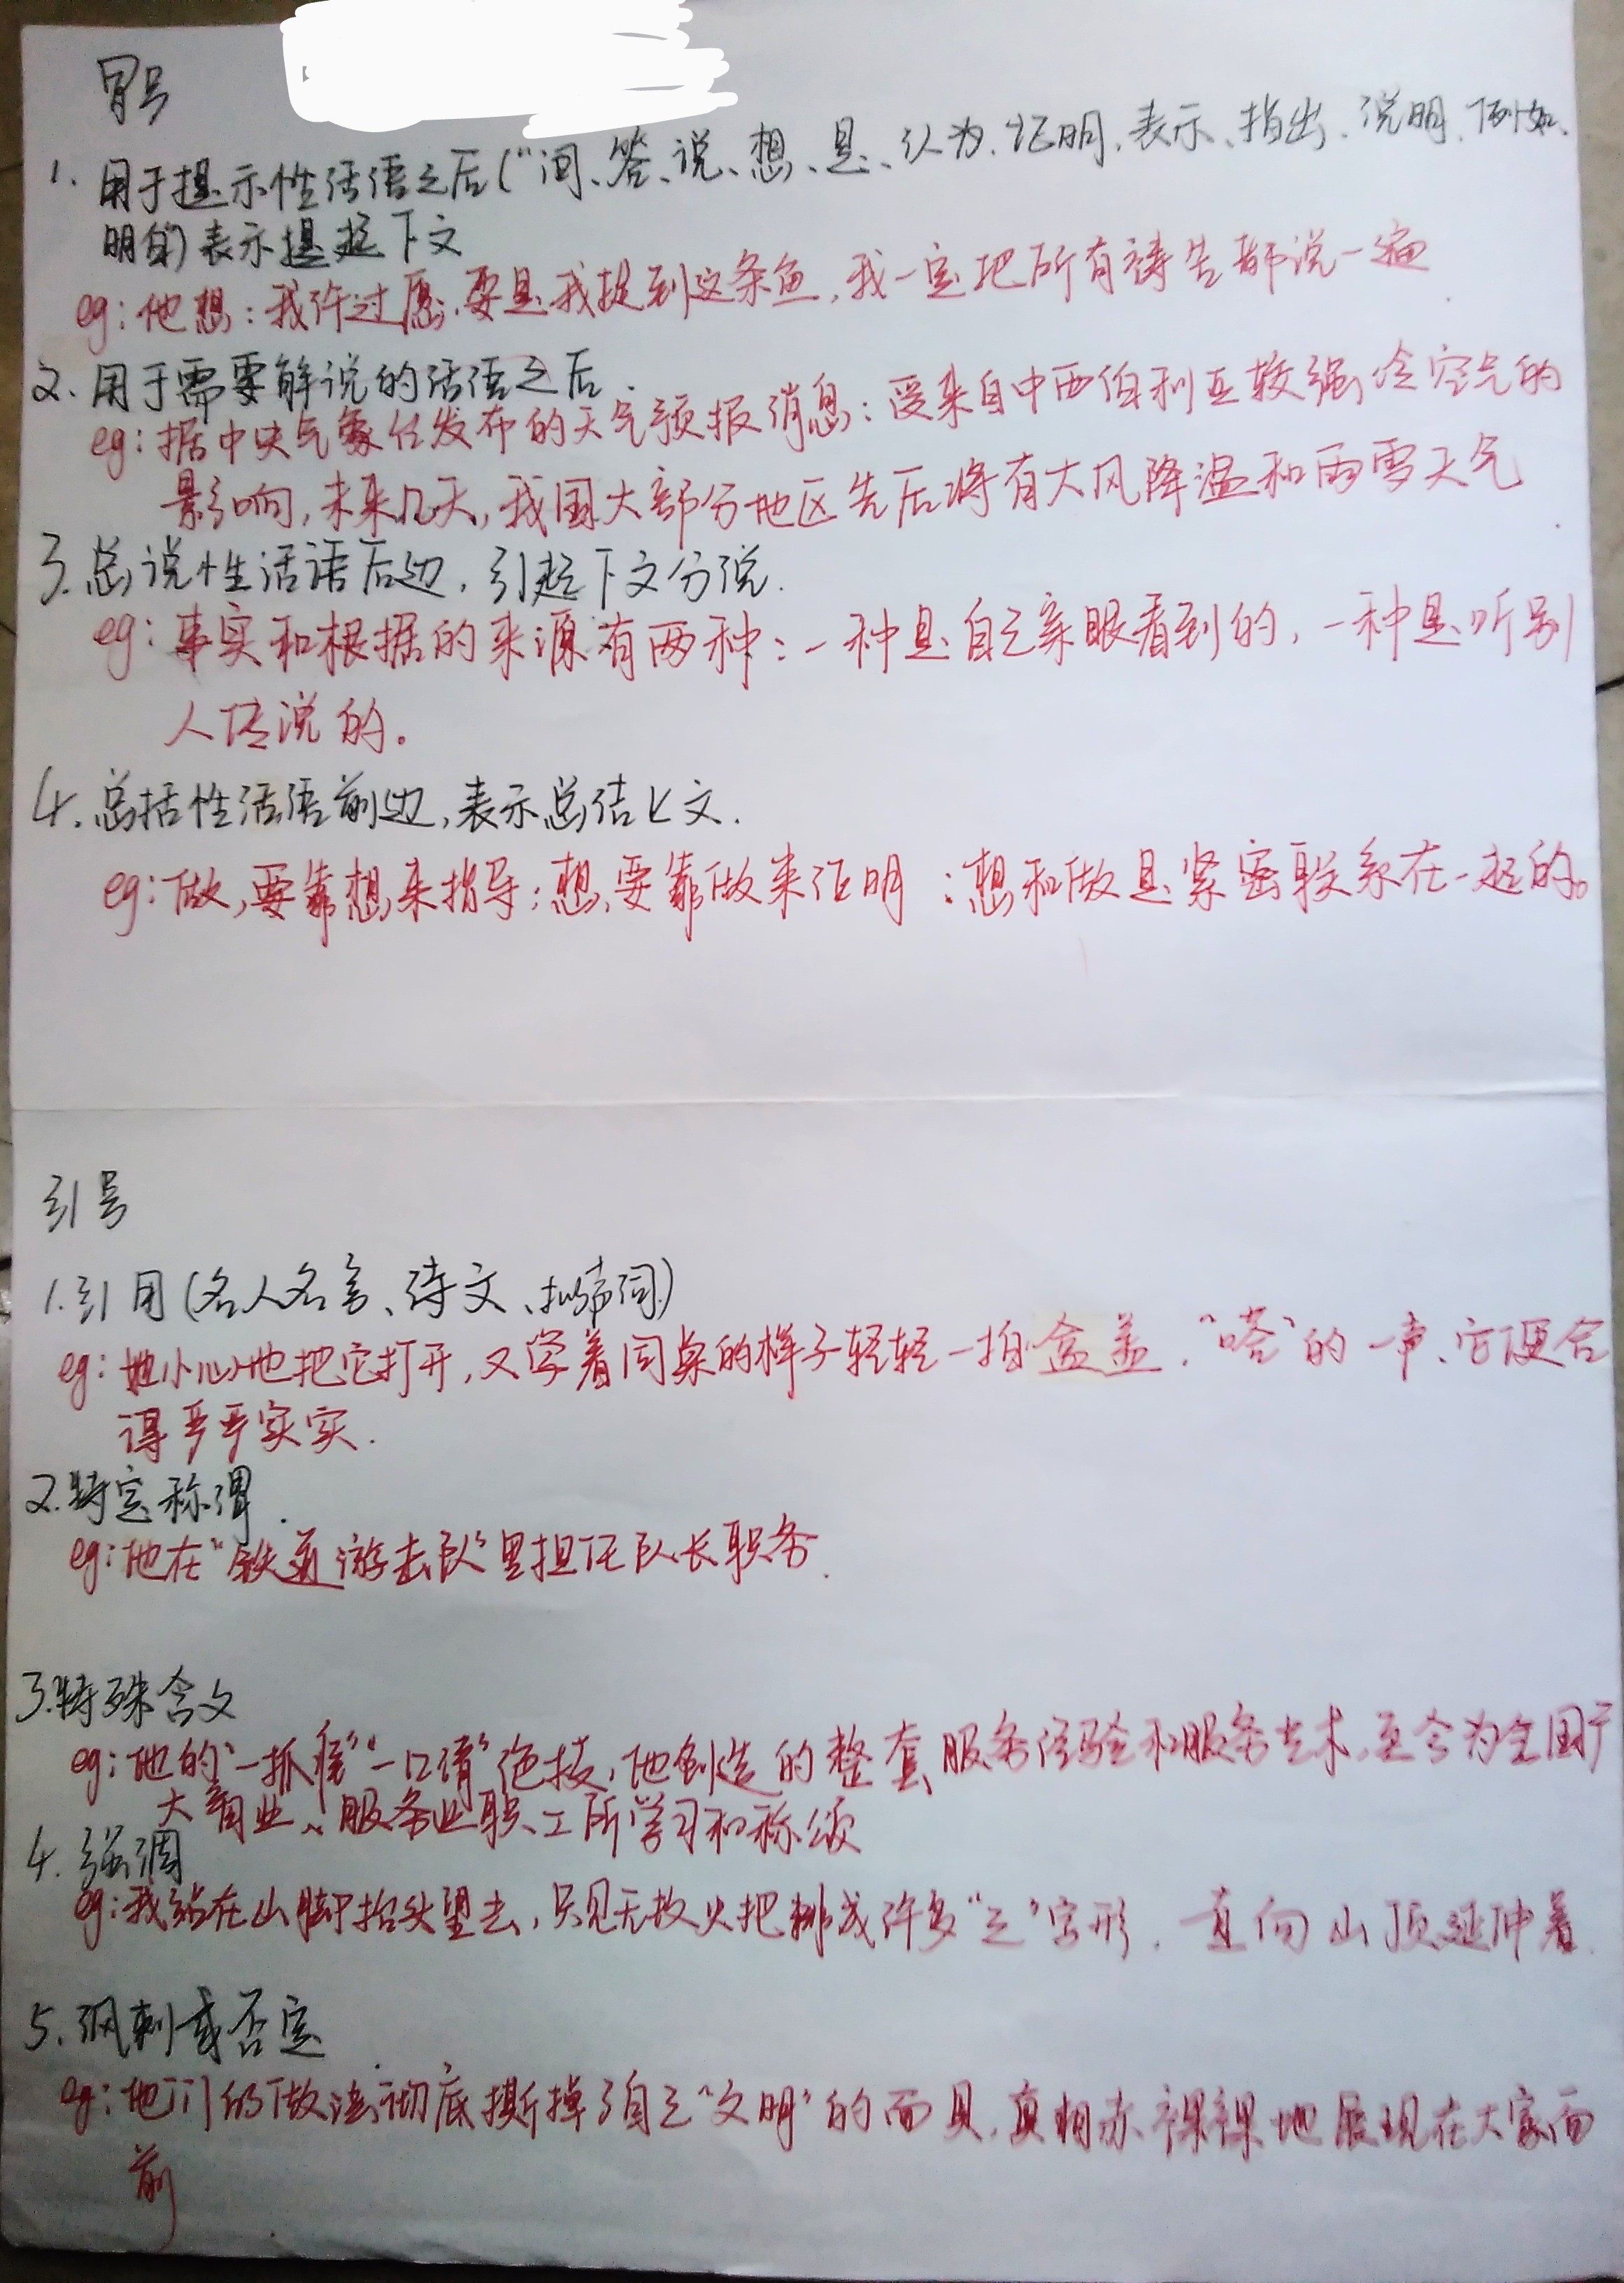 冒号
1. 用于提示性话语之后(“问、答、说、想、是、认为、证明、表示、指出、说明、例如、
明的”)表示提起下文
eg:他想:我许过愿,要是我捉到这条鱼,我一定把所有祷告都说一遍
2. 用于需要解说的话语之后.
eg:据中央气象台发布的天气预报消息:受来自中西伯利亚较强冷空气的
影响,未来几天,我国大部分地区先后将有大风降温和雨雪天气.
3.总说性话语后边,引起下文分说.
eg:事实和根据的来源有两种:一种是自己亲眼看到的,一种是听别
人传说的。
4.总括性话语前边,表示总结上文.
eg:做,要靠想来指导;想,要靠做来证明:想和做是紧密联系在一起的。
引号
1.引用(名人名言、诗文、拟声词)
eg:她小心地把它打开,又学着同桌的样子轻轻一拍盒盖,“嗒”的一声、它便合
得严严实实.
2.特定称谓.
eg:他在“铁道游击队”里担任队长职务.
3.特殊含义
eg:他的“一抓准”“一口清”绝技,他创造的整套服务经验和服务艺术,至今为全国广
大商业、服务业职工所学习和称颂
4.强调
eg:我站在山脚抬头望去,只见无数火把排成许多“之”字形,直向山顶延伸着.
5.讽刺或否定
eg:他们的做法彻底撕掉了自己“文明”的面具,真相赤裸裸地展现在大家面
前